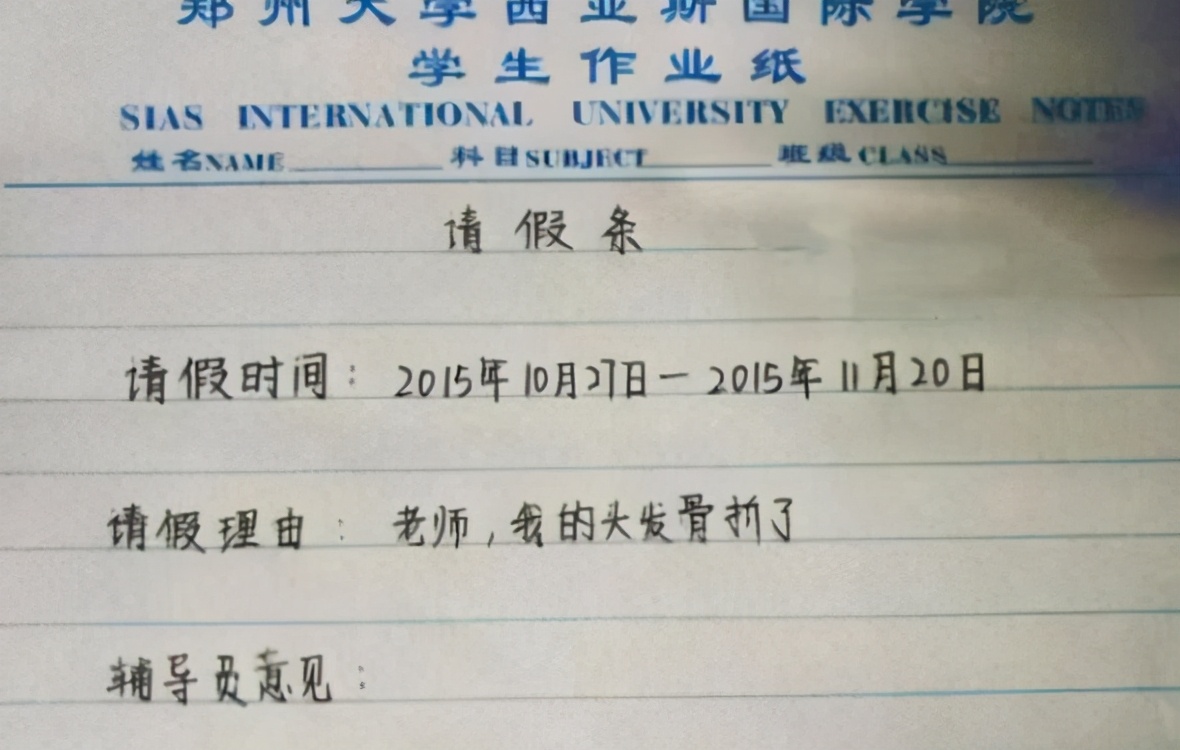 郑州大学西亚斯国际学院
学生作业纸
SIAS INTERNATIONAL UNIVERSITY EXERCISE NOTES
姓名NAME 科目SUBJECT 班级CLASS
请假条
请假时间: 2015年10月27日-2015年11月20日
请假理由: 老师,我的头发骨折了
辅导员意见: